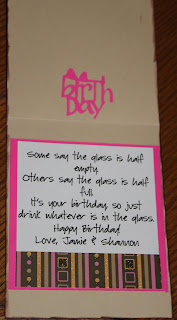 Birth
Day
Some say the glass is half
empty.
Others say the glass is half
full.
It's your birthday, so just
drink whatever is in the glass.
Happy Birthday!
Love, Jamie & Shannon